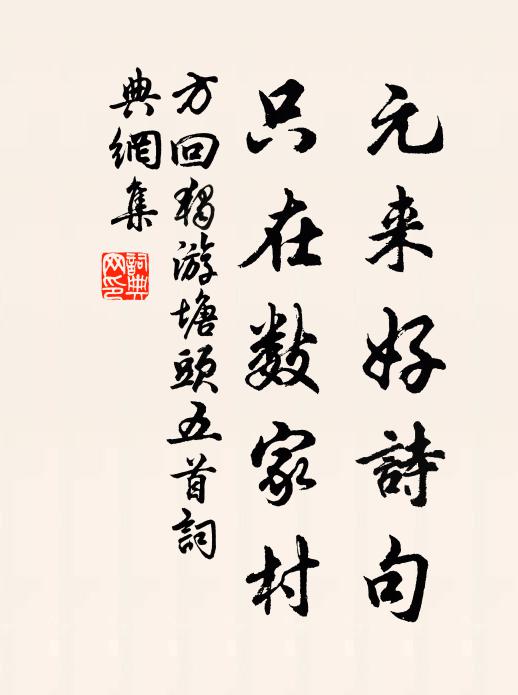 元来好詩句
只在數家村
方回獨游塘頭五首詞
典網集
詞典
网印